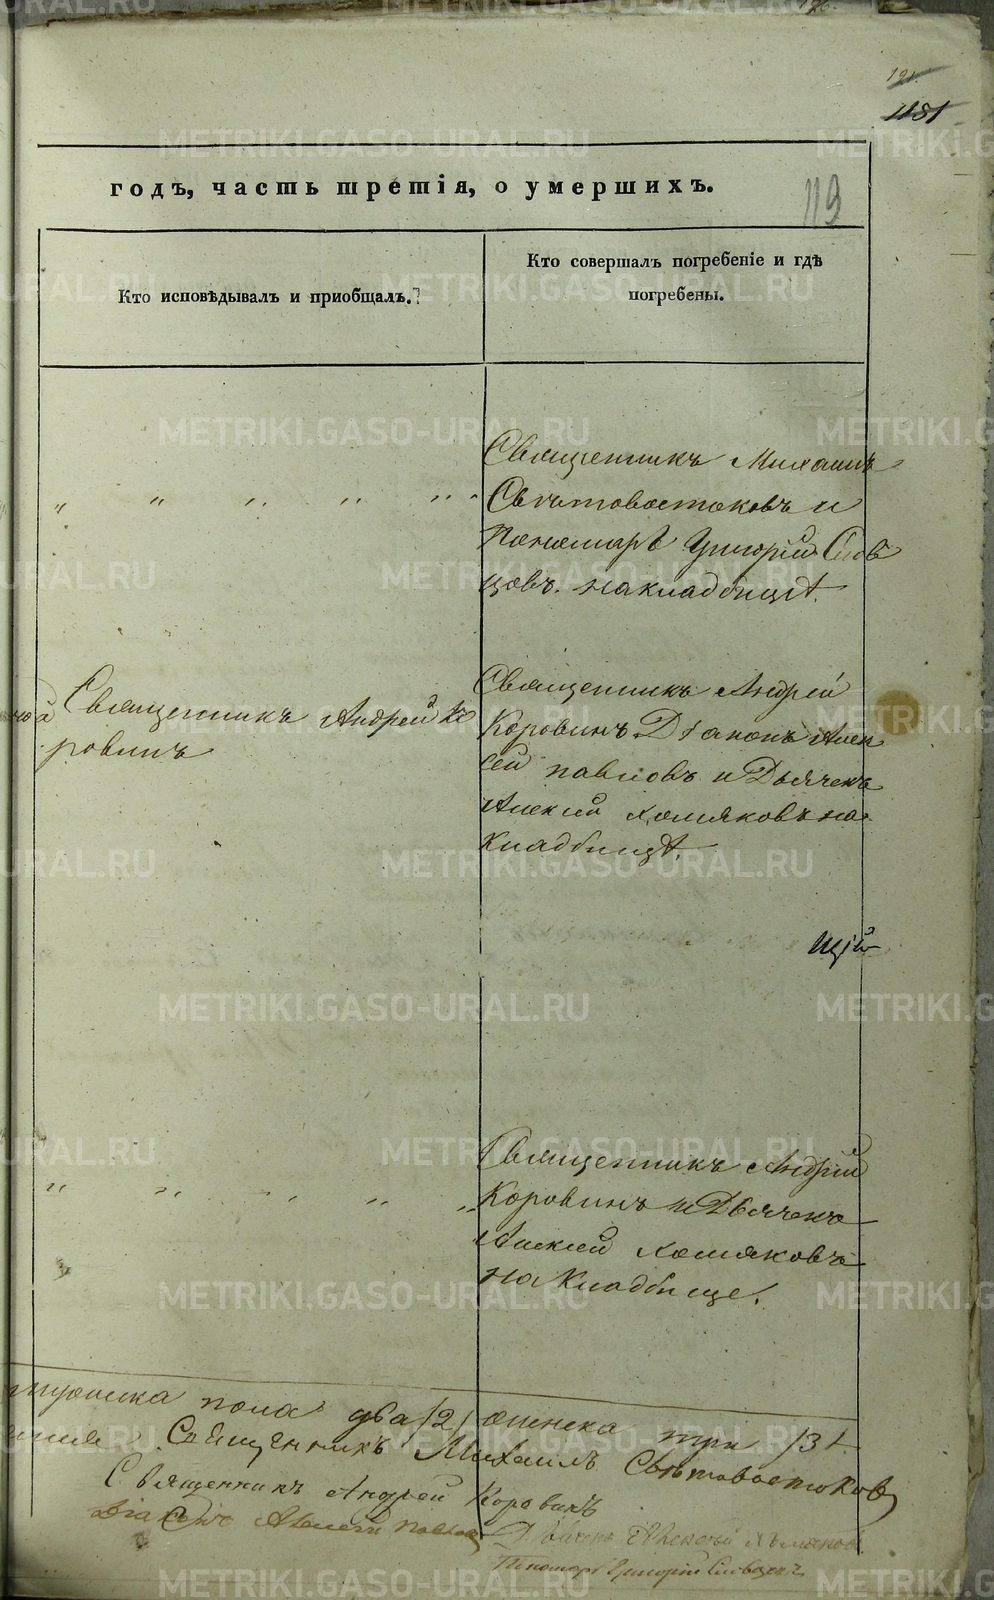 121.
1181
годъ, часть третія, о умершихъ.
119
Кто исповѣдывалъ и приобщалъ.?
Кто совершалъ погребеніе и гдѣ
погребены.
Священникъ Михаилъ
Свѣтовостоковъ и
Пономарь Григорій Слов
цовъ. на кладбищѣ.
Священникъ Андрей Ко
ровинъ
Священникъ Андрей
Коровинъ Діаконъ Алек
сѣй Павловъ и Дьячекъ
Алексій Хомяковъ на
кладбищѣ.
щій
Священникъ Андрей
Коровинъ и Дьячекъ
Алексей Хомяковъ
на кладбище.
мужеска пола два /2/ женска три /3/.
Священникъ Михаилъ Свѣтовостоковъ
Священникъ Андрей Коровинъ
Діаконъ Алексей Павловъ
Дьячекъ Алексей Хомяковъ
Пономарь Григорій Словцовъ
METRIKI.GASO-URAL.RU